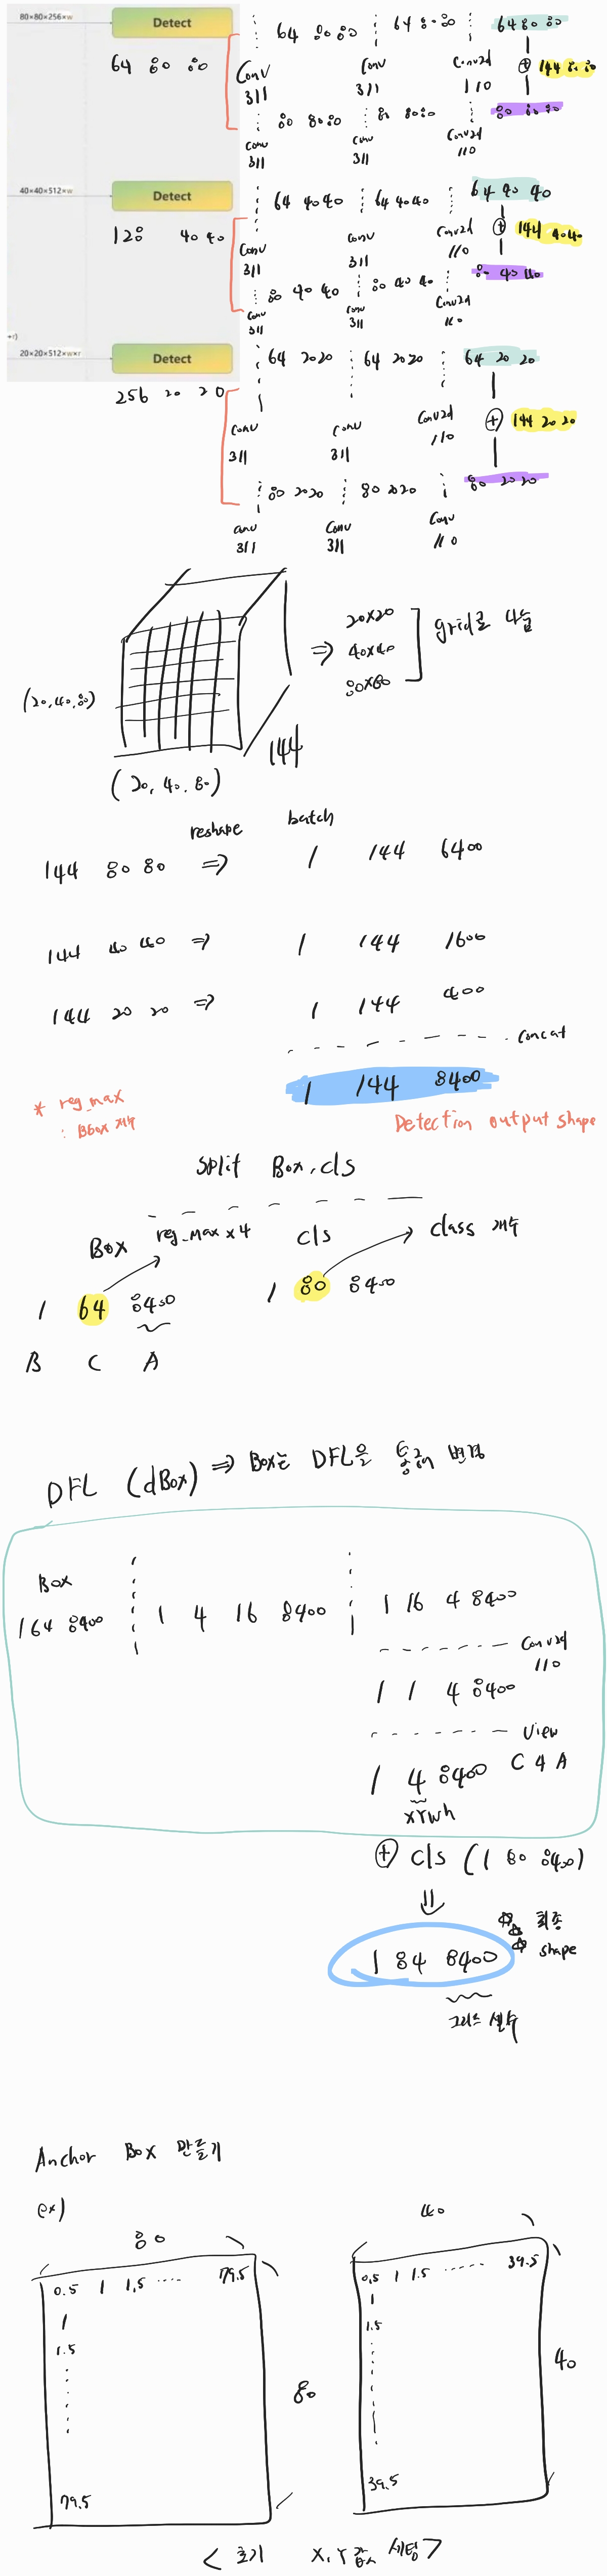 80×80×256×w
Detect
64 80 80
64 80 80
64 80 80
64 80 80
Conv
311
Conv
311
Conv2d
110
⊕ 144 80 80
80 80 80
80 80 80
80 80 80
Conv
311
Conv
311
Conv2d
110
40×40×512×w
Detect
128 40 40
64 40 40
64 40 40
64 40 40
Conv
311
Conv
311
Conv2d
110
⊕ 144 40 40
80 40 40
80 40 40
80 40 40
Conv
311
Conv
311
Conv2d
110
+r)
20×20×512×w×r
Detect
256 20 20
64 20 20
64 20 20
64 20 20
Conv
311
Conv
311
Conv2d
110
⊕ 144 20 20
80 20 20
80 20 20
80 20 20
Conv
311
Conv
311
Conv
110
(20, 40, 80)
(20, 40, 80)
144
⇒
20×20
40×40
80×80
grid로 나눔
reshape
batch
144 80 80 ⇒ 1 144 6400
144 40 40 ⇒ 1 144 1600
144 20 20 ⇒ 1 144 400
concat
1 144 8400
* reg_max
: BBox 개수
Detection output shape
split Box, cls
Box
reg_max × 4
cls
class 개수
1 64 8400
1 80 8400
B C A
DFL (dBox) ⇒ Box는 DFL을 통해 변경
Box
1 64 8400
1 4 16 8400
1 16 4 8400
Conv2d
110
1 1 4 8400
View
1 4 8400
C 4 A
xywh
⊕ cls (1 80 8400)
⇓
1 84 8400
최종
shape
그리드 셀수
Anchor Box 만들기
ex)
80
0.5 1 1.5 ..... 79.5
1
1.5
79.5
80
40
0.5 1 1.5 ...... 39.5
1
1.5
39.5
40
< 초기 X, Y값 세팅 >